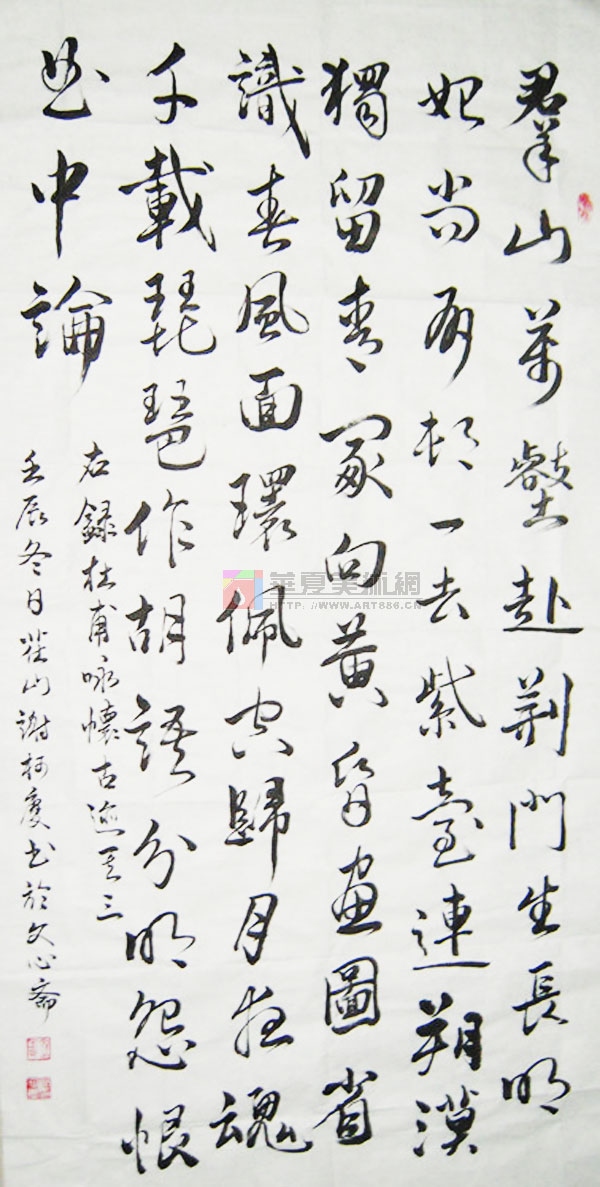 羣山萬壑赴荆門生長明
妃尚有村一去紫臺連朔漠
獨留青冢向黄昏畫圖省
識春風面環佩空歸月夜魂
千載琵琶作胡語分明怨恨
曲中論
右録杜甫咏懷古迹其三
壬辰冬日山謝柯慶书於文心斋
華夏美術網
HTTP://WWW.ART886.CN